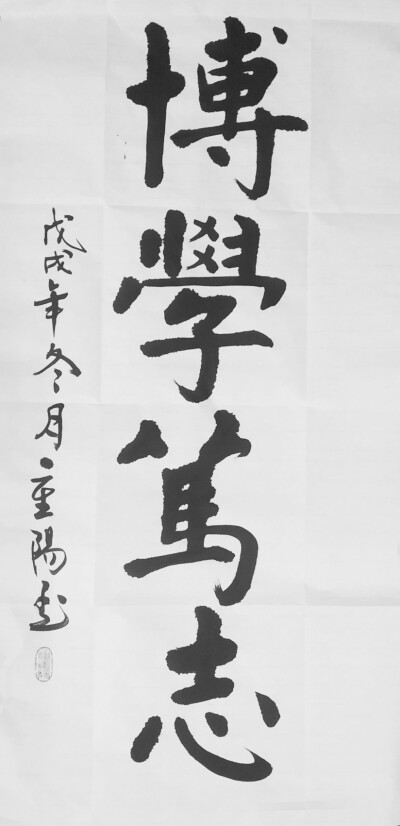 博學篤志
戊戌年冬月重陽書